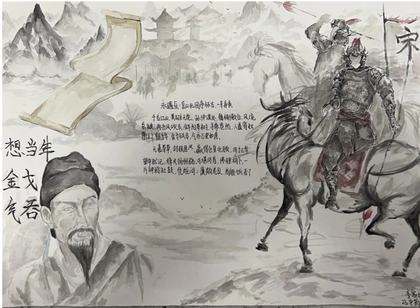 宋
永遇乐·京口北固亭怀古—辛弃疾
千古江山,英雄无觅,孙仲谋处。舞榭歌台,风流
总被,雨打风吹去。斜阳草树,寻常巷陌,人道寄奴
曾住。想当年,金戈铁马,气吞万里如虎。
元嘉草草,封狼居胥,赢得仓皇北顾。四十三
年,望中犹记,烽火扬州路。可堪回首,佛狸祠下,一
片神鸦社鼓。凭谁问:廉颇老矣,尚能饭否?
想当年
金戈
气吞